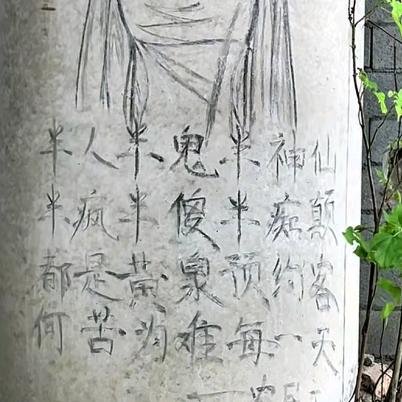 半人半鬼半神仙
半疯半傻半痴颠
都是黄泉预约客
何苦为难每一天